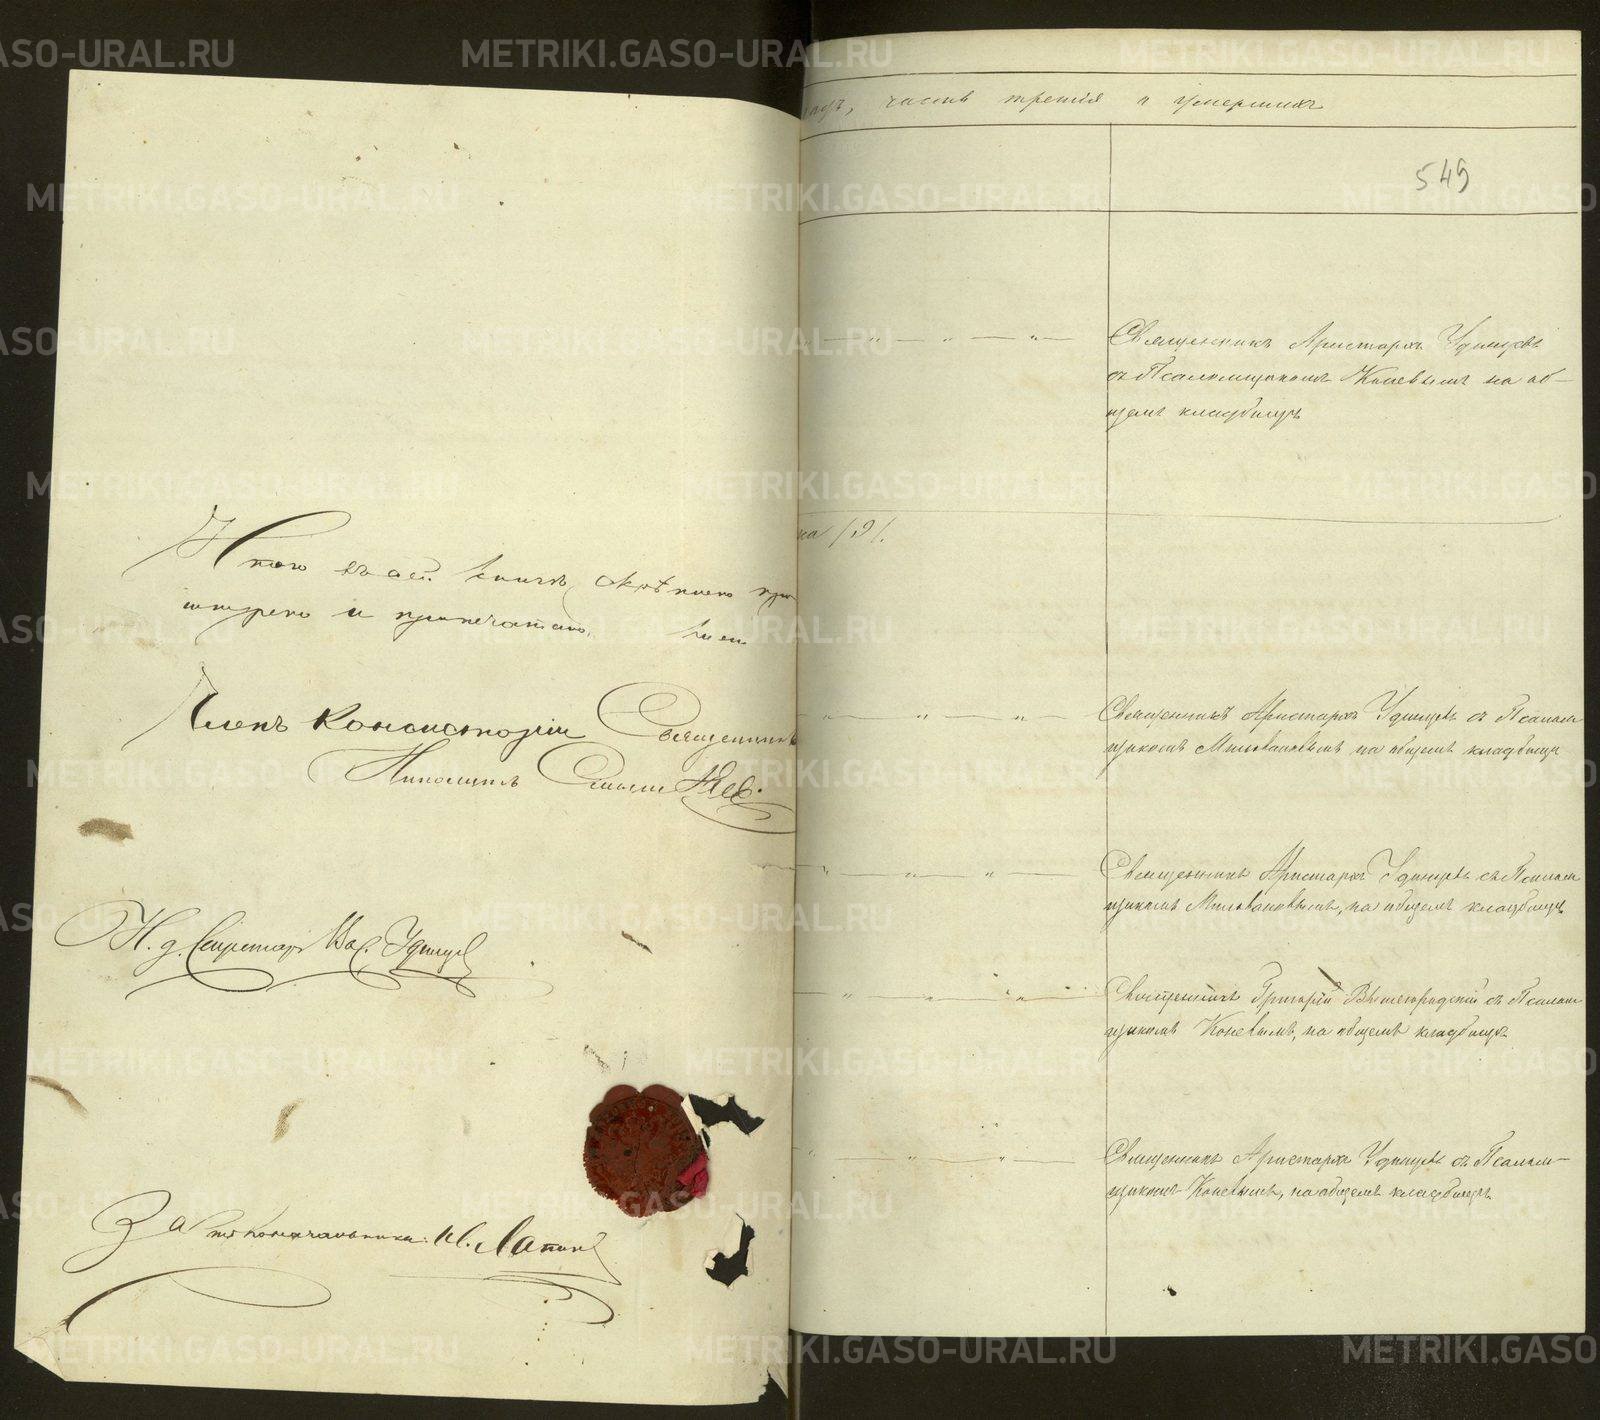 Итого въ сей книгѣ скрѣплено
шнурено и припечатано
Членъ Консисторіи Священникъ
И. д. Секретаря Вас. Удинцевъ
За столоначальника: И. Лапинъ
часть третія о умершихъ
549
Священникъ Аристархъ Удинцевъ
съ Псаломщикомъ Коневымъ на об-
щемъ кладбищѣ
Священникъ Аристархъ Удинцевъ съ Псалом
щикомъ Миловановымъ на общемъ кладбищѣ
Священникъ Аристархъ Удинцевъ съ Псалом
щикомъ Миловановымъ, на общемъ кладбищѣ
Священникъ Григорій съ Псалом
щикомъ Коневымъ, на общемъ кладбищѣ
Священникъ Аристархъ Удинцевъ съ Псалом-
щикомъ Коневымъ, на общемъ кладбищѣ
METRIKI.GASO-URAL.RU